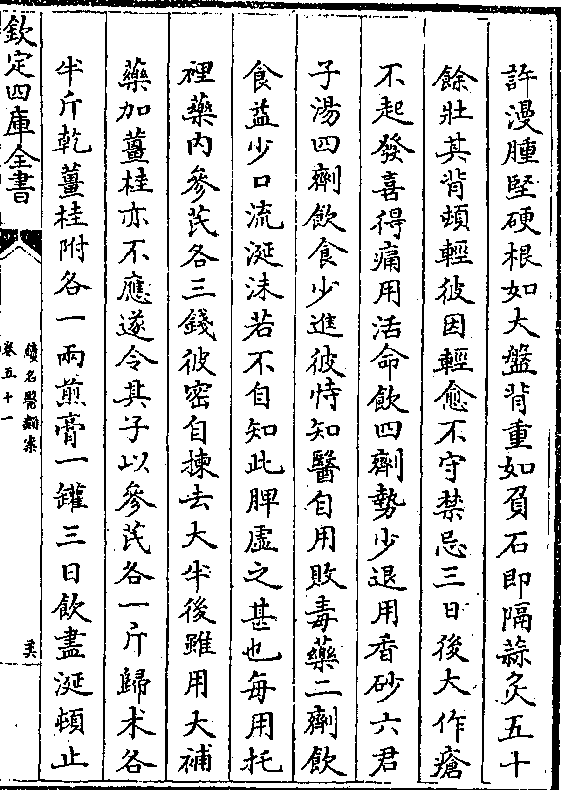 許漫腫堅硬根如大盤背重如負石即隔蒜灸五十
餘壯其背頓輕彼因輕愈不守禁忌三日後大作瘡
不起發喜得痛用活命飲四劑勢少退用香砂六君
子湯四劑飲食少進彼恃知醫自用敗毒藥二劑飲
食益少口流涎沫若不自知此脾虛之甚也每用托
裡藥內參芪各三錢彼密自揀去大半後雖用大補
藥加薑桂亦不應遂令其子以參芪各一斤歸术各
半斤乾薑桂附各一兩煎膏一罐三日飲盡涎頓止
欽定四庫全書
續名醫類案
卷五十一